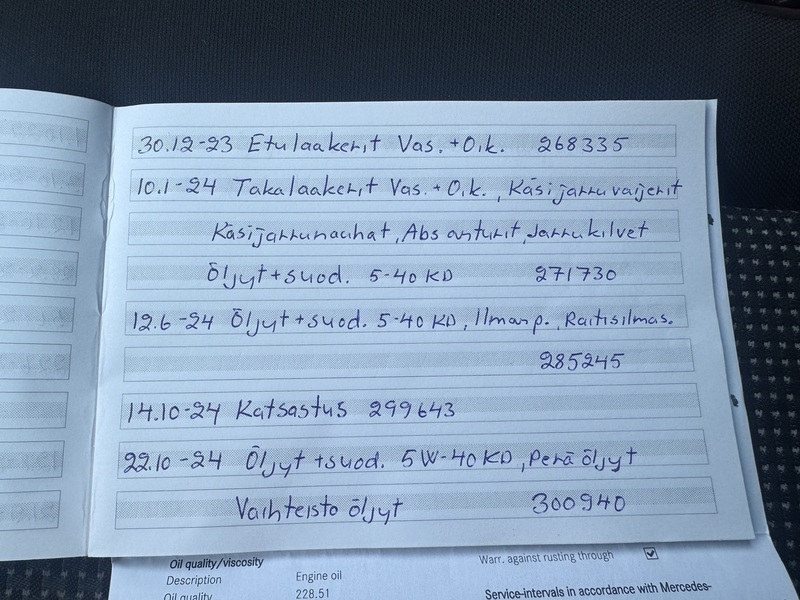 30.12-23 Etulaakerit Vas.+Oik. 268335
10.1-24 Takalaakerit Vas.+Oik., Käsijarruvaijerit
Käsijarrunauhat, Abs anturit, Jarrukilvet
Öljyt+suod. 5-40 KD 271730
12.6-24 Öljyt+suod. 5-40 KD, Ilmanp., Raitisilmas.
285245
14.10-24 Katsastus 299643
22.10-24 Öljyt+suod. 5W-40 KD, Perä öljyt
Vaihteisto öljyt 300940
Oil quality/viscosity
Warr. against rusting through
Description Engine oil
Oil quality 228.51
Service-intervals in accordance with Mercedes-